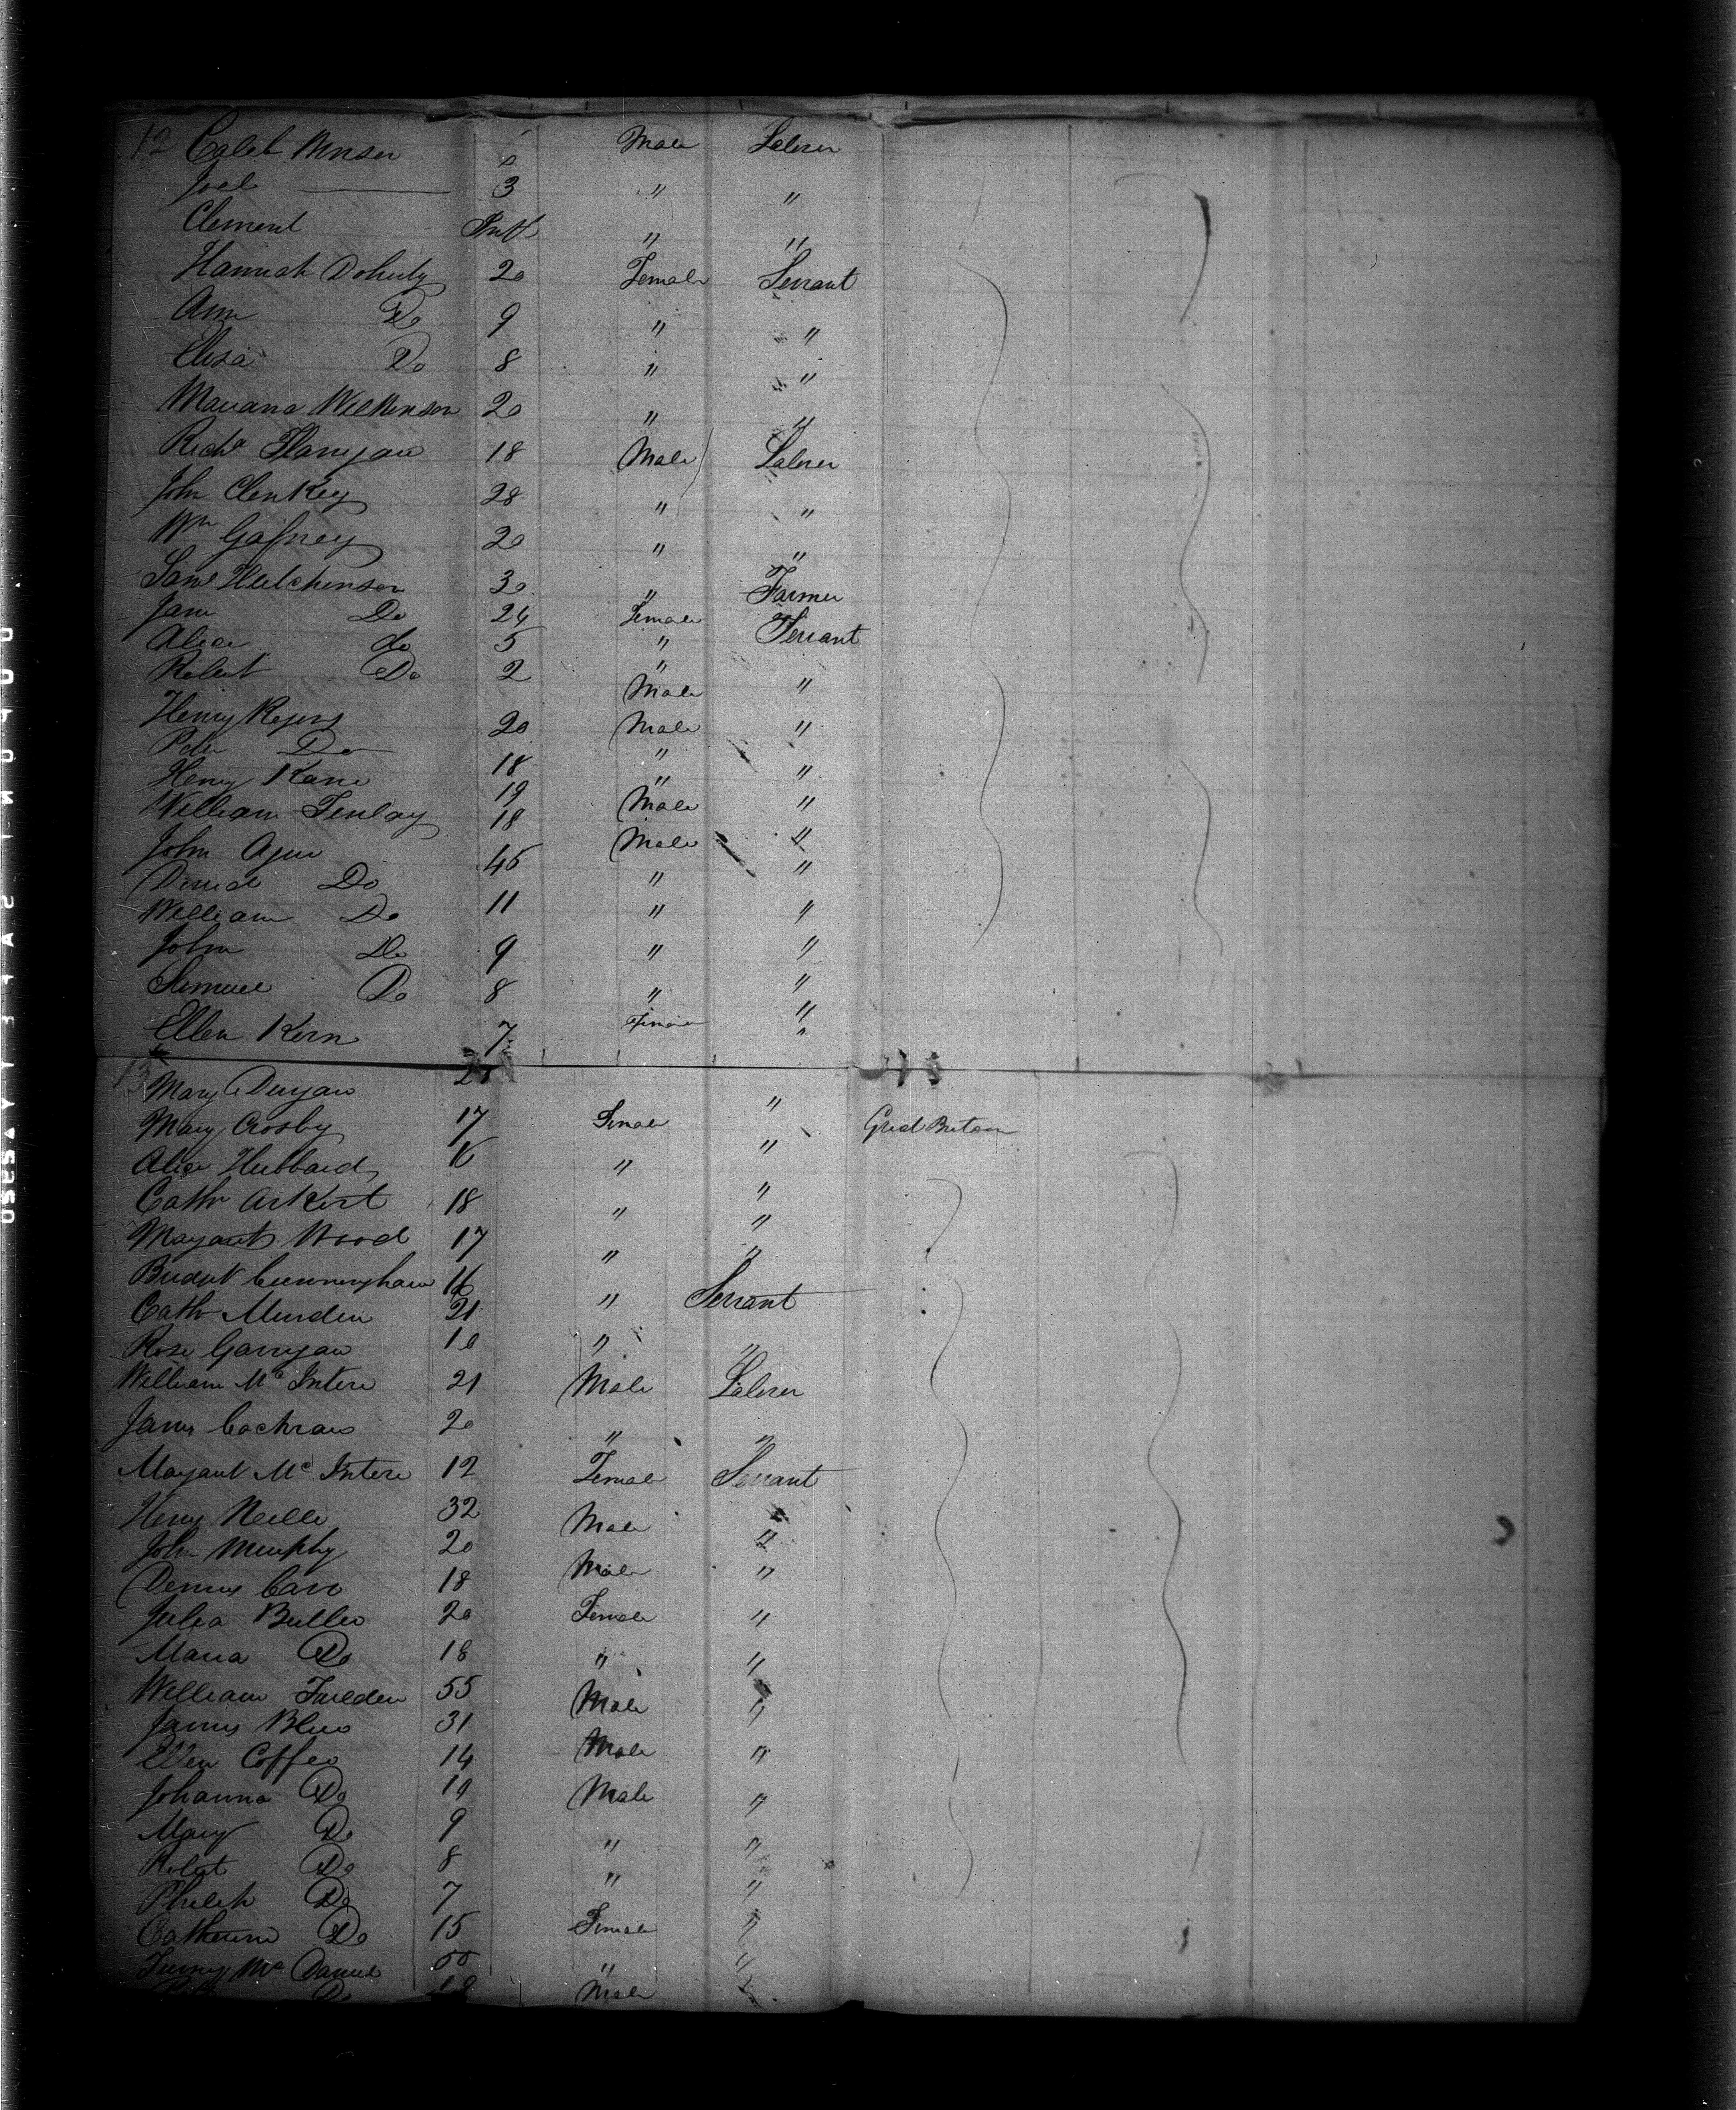 12 Caleb Male Laborer
Joel 3 " "
Clement Inft " "
Hannah Dohuty 20 Female Servant
Ann Do 9 " "
Eliza Do 8 " "
Mariana Wilkinson 20 " "
Richd Flanigan 18 Male Laborer
John Clenkey 28 " "
Wm Gafney 20 " "
Saml Hutchinson 30 " Farmer
Jane Do 24 Female Servant
Alice do 5 " "
Robert Do 2 Male "
Henry Rogers 20 Male "
Peter Do 18 " "
Henry Kane 19 " "
William Finlay 18 Male "
John 45 Male "
Do "
William Do 11 " "
John Do 9 " "
Samuel Do 8 " "
Ellen Kern 7 Female "
13 Mary Durgan "
Mary Crosby 17 Female " Great Britain
Alice Hubbard 16 " "
Cathn Arkert 18 " "
Margaret Wood 17 " "
Bridget Cunningham 16 " Servant
Cathn Murden 21
Rose Garrigan " "
William Mc Intire 21 Male Laborer
James Cochran 20 " "
Margaret Mc Intire 12 Female Servant
Henry Neille 32 Male "
John Murphy 20 Male "
Dennis Carr 18
Julia Butler 20 Female "
Maria Do 18 " "
William 55 Male "
James Blue 31 Male "
Ellen Coffee 14 Male "
Johanna Do
Mary Do 9 " "
Robert Do 8 " "
Do 7
Catherine Do 15 Female "
Mc Daniel " "
Do Male